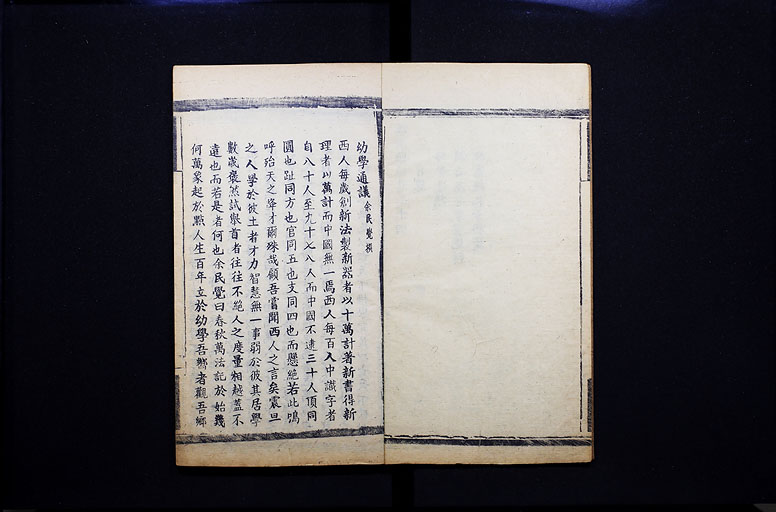 幼學通議 余民覺撰
西人每歲創新法製新器者以十萬計著新書得新
理者以萬計而中國無一焉西人每百人中識字者
自八十人至九十七八人而中國不逮三十人頂同
圓也趾同方也官同五也支同四也而懸絕若此嗚
呼殆天之降才爾殊哉顧吾嘗聞西人之言矣震旦
之人學於彼土者才力智慧無一事弱於彼其居學
數歲褎然試舉首者往往不絕人之度量相越蓋不
遠也而若是者何也余民覺曰春秋萬法託於始幾
何萬象起於點人生百年立於幼學吾鄉者觀吾鄉